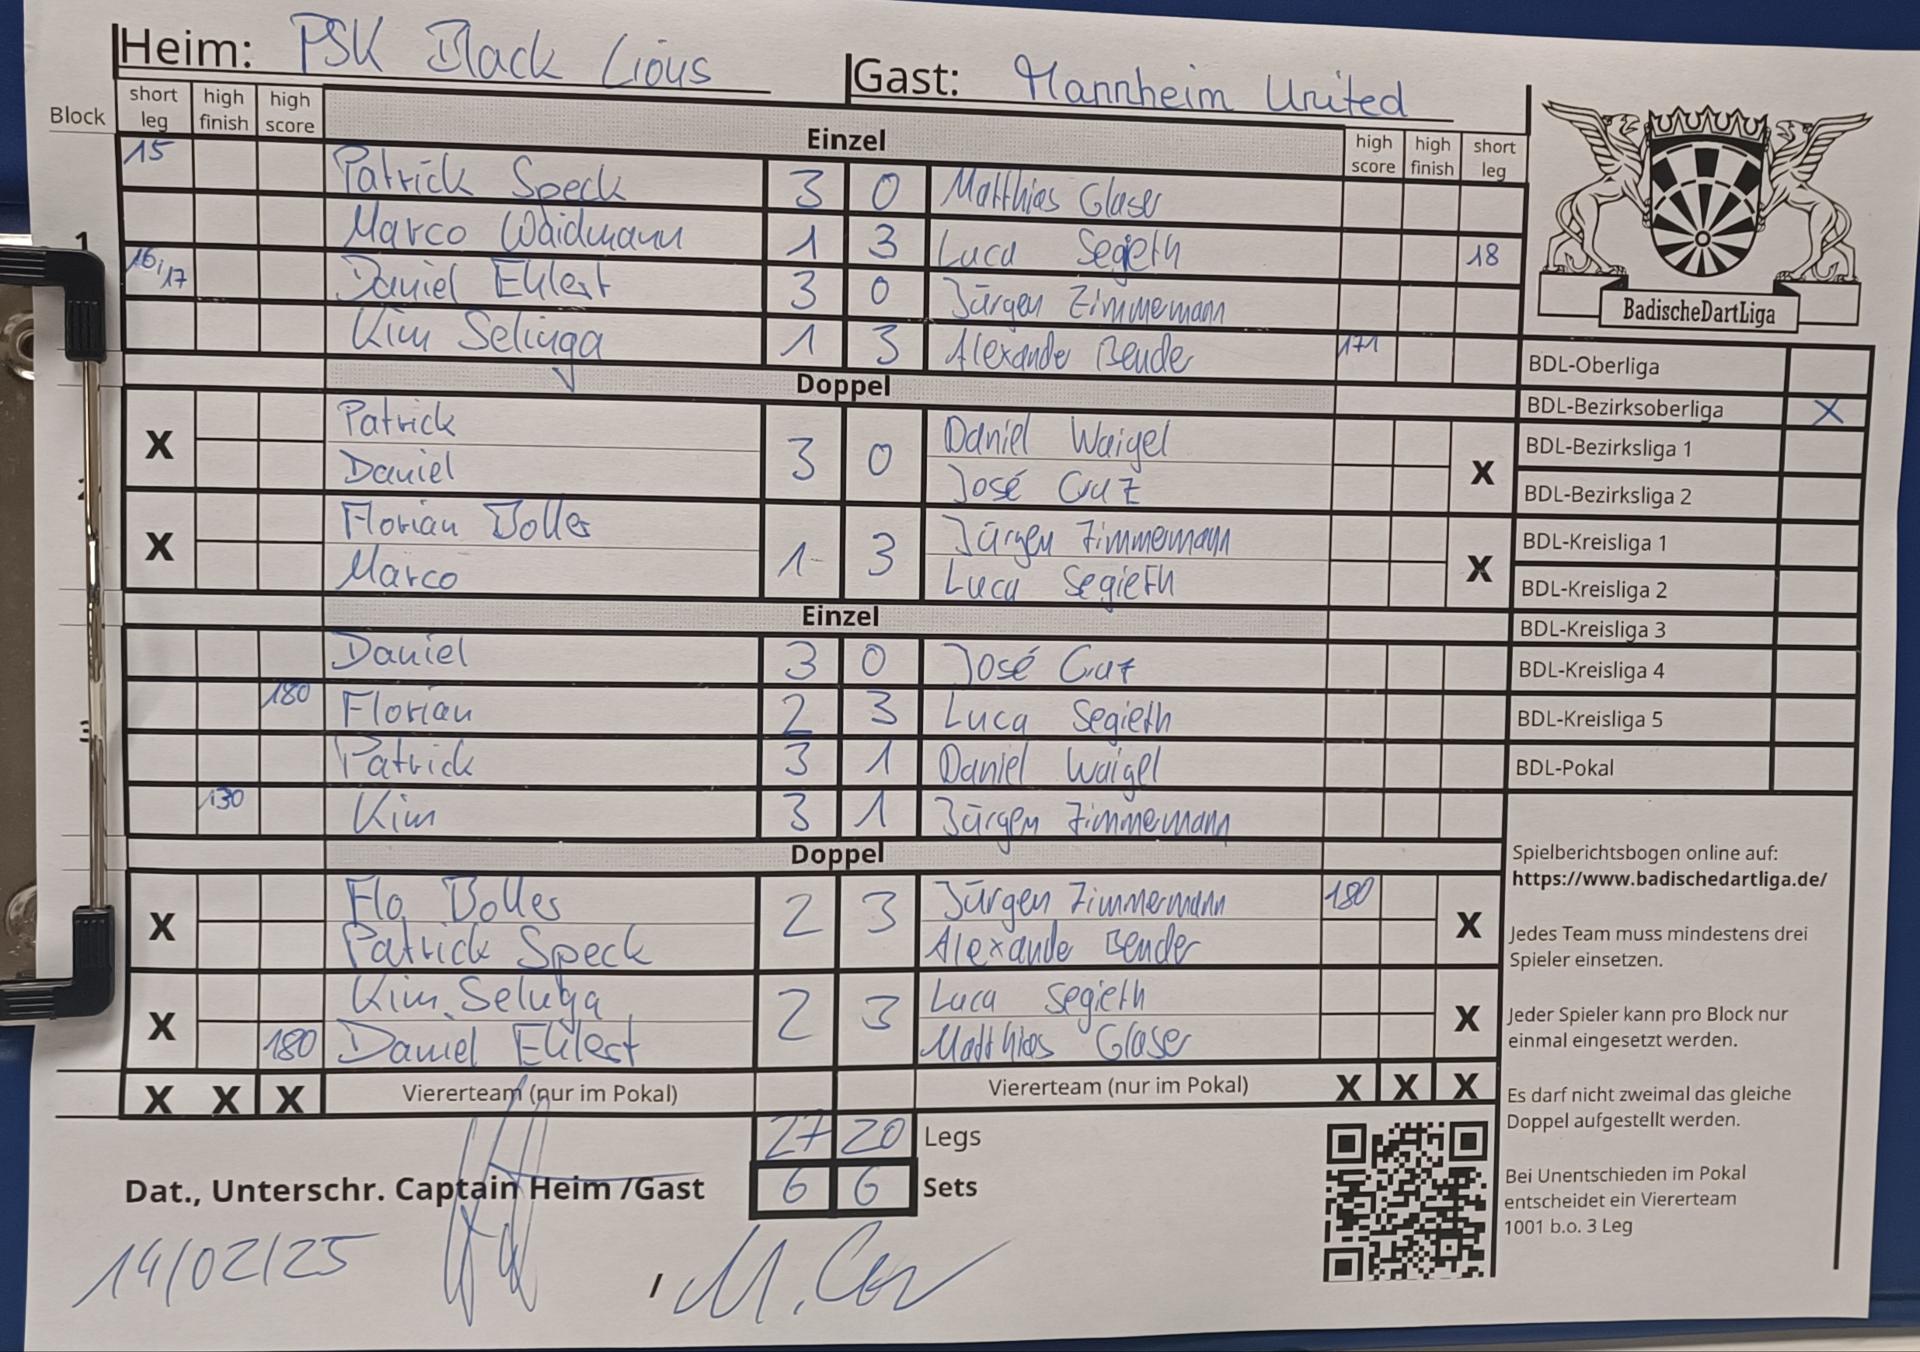 Heim: PSK Black Lions Gast: Mannheim United
Block short leg high finish high score Einzel high score high finish short leg
15 Patrick Speck 3 0 Matthias Glaser
1 Marco Waidmann 1 3 Luca Segieth 18
16/17 Daniel Ehlert 3 0 Jürgen Zimmemann
Kim Selinga 1 3 Alexande Bender 171
Doppel
X Patrick 3 0 Daniel Waigel X
Daniel José Cruz
X Florian Bolles 1 3 Jürgen Zimmemann X
Marco Luca Segieth
Einzel
Daniel 3 0 José Cruz
180 Florian 2 3 Luca Segieth
3 Patrick 3 1 Daniel Waigel
130 Kim 3 1 Jürgen Zimmemann
Doppel
X Flo Bolles 2 3 Jürgen Zimmemann 180 X
Patrick Speck Alexande Bender
X Kim Seluga 2 3 Luca Segieth X
180 Daniel Ehlert Matthias Glaser
X X X Viererteam (nur im Pokal) Viererteam (nur im Pokal) X X X
27 20 Legs
Dat., Unterschr. Captain Heim /Gast 6 6 Sets
14/02/25 /
BadischeDartLiga
BDL-Oberliga
BDL-Bezirksoberliga X
BDL-Bezirksliga 1
BDL-Bezirksliga 2
BDL-Kreisliga 1
BDL-Kreisliga 2
BDL-Kreisliga 3
BDL-Kreisliga 4
BDL-Kreisliga 5
BDL-Pokal
Spielberichtsbogen online auf:
https://www.badischedartliga.de/
Jedes Team muss mindestens drei
Spieler einsetzen.
Jeder Spieler kann pro Block nur
einmal eingesetzt werden.
Es darf nicht zweimal das gleiche
Doppel aufgestellt werden.
Bei Unentschieden im Pokal
entscheidet ein Viererteam
1001 b.o. 3 Leg